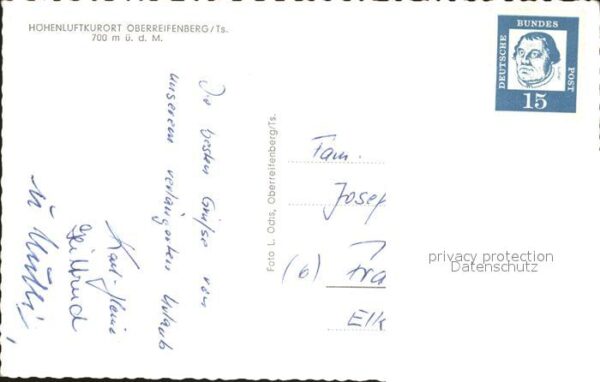 HÖHENLUFTKURORT OBERREIFENBERG/Ts.
700 m ü. d. M.
DEUTSCHE BUNDES POST
15
Die besten Grüße von
unserem verlängerten Urlaub
Karl-Heinz
u Mutti,
Foto L. Ochs, Oberreifenberg/Ts.
Fam.
Josef
(6) Fra
Elk
privacy protection
Datenschutz